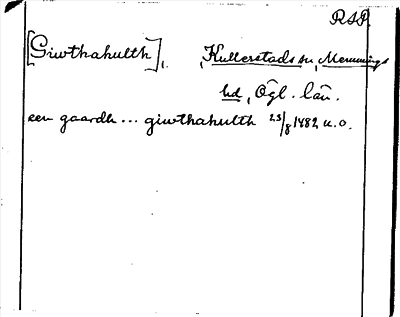 RSP
[Giwthahulth], Kullerstads sn, Memmings
hd, Ögl. län.
een gaardh ... giwthahulth 25/8 1482 u.o.